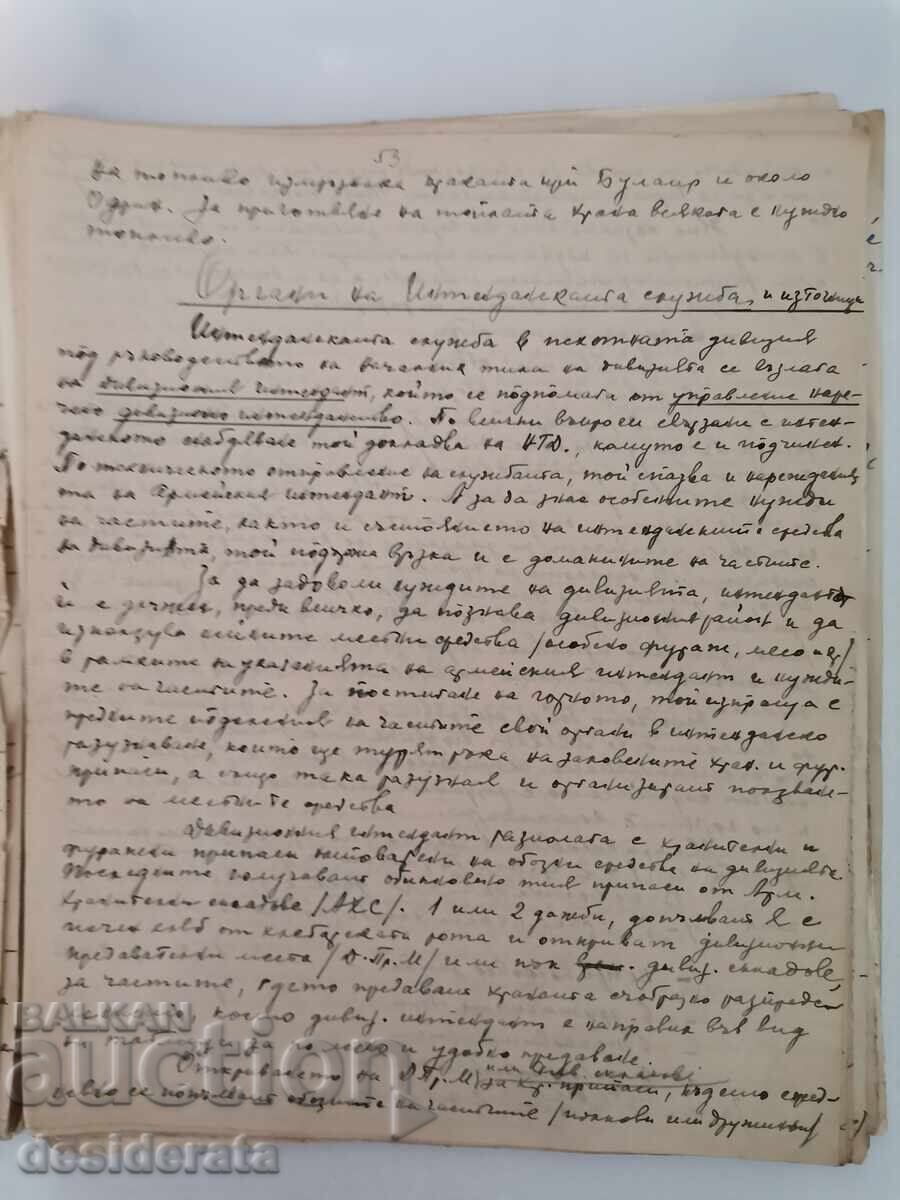 53
на топливо измръзнаха храната при Булаир и около
Одрин. За приготвяне на топлата храна всякога е нуждно
топливо.
Органи на Интендантската служба, и източници
Интендантската служба в пехотната дивизия
под ръководството на началник щаба на дивизията се възлага
на дивизионния интендант, който се подпомага от управление наре-
чено дивизионно интендантство. По всички въпроси свързани с интен-
дантското снабдяване той докладва на НЩД., комуто е и подчинен.
По техническото отправление на службата, той спазва и нареждания
та на Армейския интендант. А за да знае особените нужди
на частите, както и състоянието на интендантските средства
на дивизията, той поддържа връзка и с домакините на частите.
За да задоволи нуждите на дивизията, интендантът
й е длъжен, преди всичко, да познава дивизионния район и да
използува всичките местни средства /особено фураж, месо и др/
в рамките на указанията на армейския интендант и нужди-
те на частите. За постигане на горното, той изпраща с
предните отделения на частите свои органи в интендантско
разузнаване, които ще турят ръка на заловените хран. и фур.
припаси, а също така разузнават и организират ползване-
то на местните средства
Дивизионния интендант разполага с хранителни и
фуражни припаси натоварени на обозни средства на дивизията
Последните получават обикновено тия припаси от Арм.
хранителни складове /АХС/. 1 или 2 дажби, допълват я с
печен хляб от хлебарската рота и откриват дивизионни
предавателни места /Д.Пр.М/ или пък дивиз. складове,
за частите, где то предават храната съобразно разпреде-
лението, което дивиз. интендант е направил във вид
на таблици за по лесно и удобно предаване.
Откриването на Д.Пр.М/ или див. складове
за хр. припаси, където еднед-
невно се попълват обозите на частите /полкови или дружинни/
BALKAN
auction
desiderata